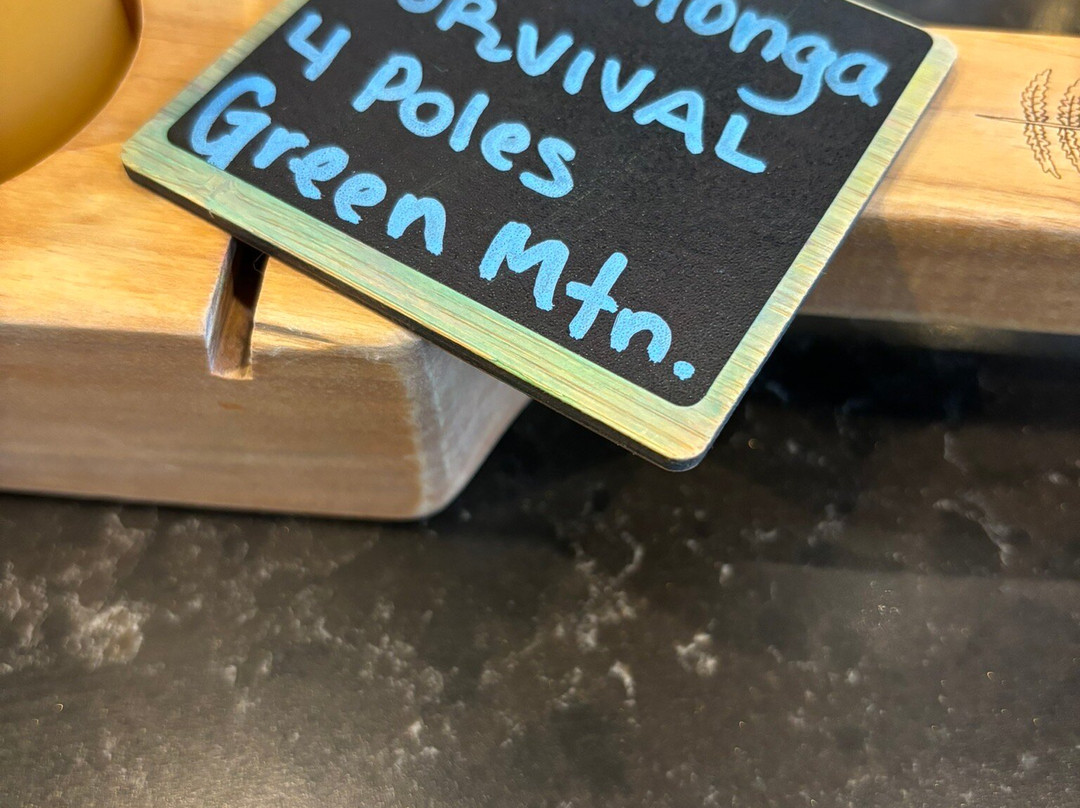 SURVIVAL
4 Poles
Green Mtn.